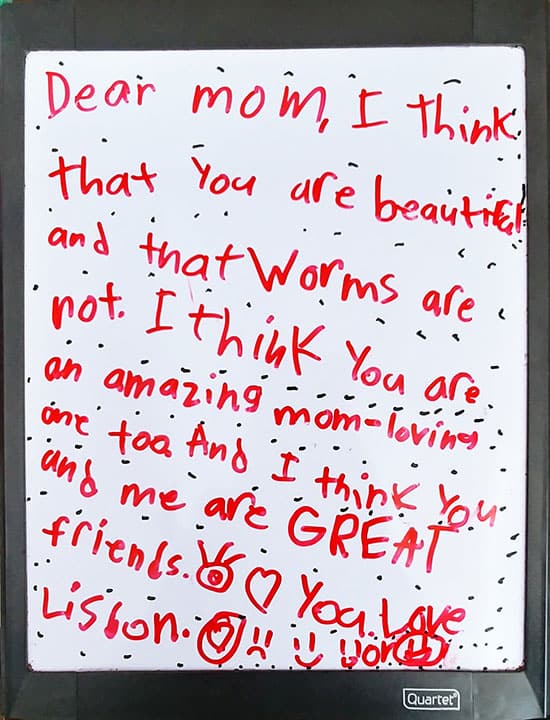 Dear mom, I think
that you are beautiful
and that Worms are
not. I think you are
an amazing mom-loving
one too. And I think you
and me are GREAT
friends. You. Love
Lisbon.
Quartet